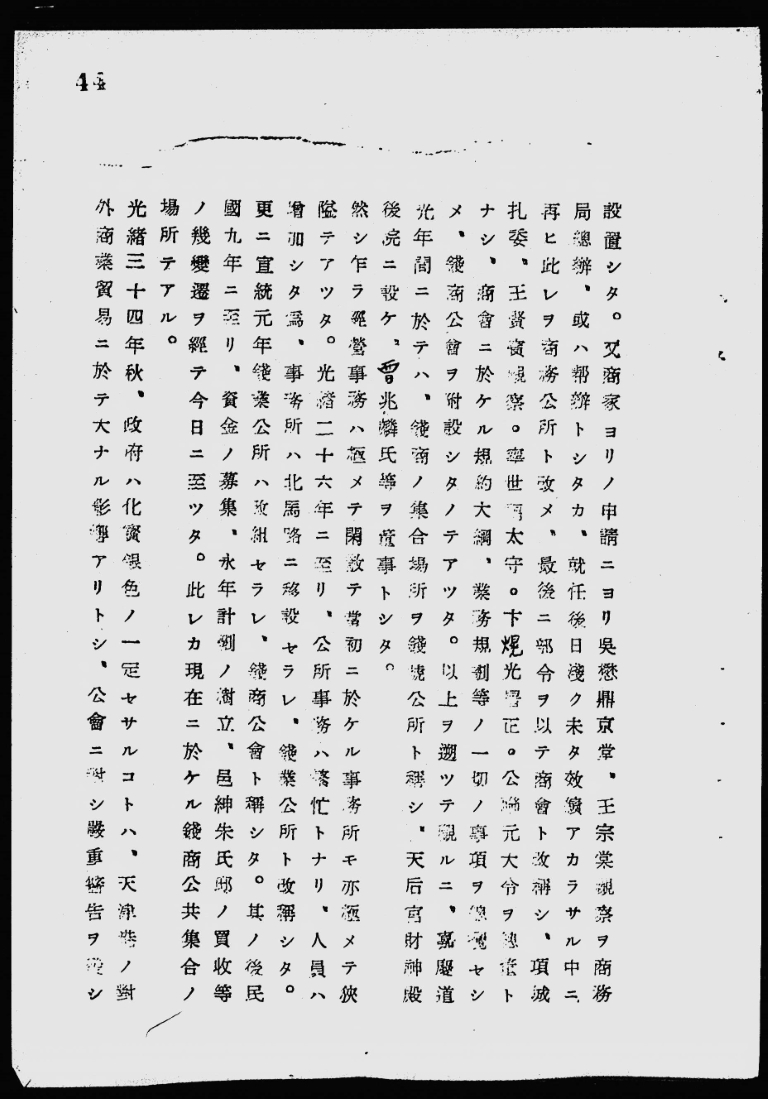 44
設置シタ。又商家ヨリノ申請ニヨリ吳懋鼎京堂、王宗棠觀察ヲ商務
局總辦、或ハ幇辦トシタカ、就任後日淺ク未タ效績アカラサル中ニ
再ヒ此レヲ商務公所ト改メ、最後ニ部令ヲ以テ商會ト改稱シ、項城
札委、王賢賓觀察。寧世福太守。卞煜光署正。公 元大令ヲ總董ト
ナシ、商會ニ於ケル規約大綱、業務規則等ノ一切ノ事項ヲ セシ
メ、錢商公會ヲ附設シタノテアツタ。以上ヲ遡ツテ觀ルニ、嘉慶道
光年間ニ於テハ、錢商ノ集合場所ヲ錢號公所ト稱シ、天后宮財神殿
後院ニ設ケ、曹兆麟氏等ヲ董事トシタ。
然シ乍ラ經營事務ハ極メテ閑散テ當初ニ於ケル事務所モ亦極メテ狹
隘テアツタ。光緒二十六年ニ至リ、公所事務ハ繁忙トナリ、人員ハ
增加シタ爲、事務所ハ北馬路ニ移設セラレ、錢業公所ト改稱シタ。
更ニ宣統元年錢業公所ハ改組セラレ、錢商公會ト稱シタ。其ノ後民
國九年ニ至リ、資金ノ募集、永年計劃ノ樹立、邑紳朱氏邸ノ買收等
ノ幾變遷ヲ經テ今日ニ至ツタ。此レカ現在ニ於ケル錢商公共集合ノ
場所テアル。
光緒三十四年秋、政府ハ化寶銀色ノ一定セサルコトハ、天津港ノ對
外商業貿易ニ於テ大ナル影響アリトシ、公會ニ對シ嚴重警告ヲ發シ